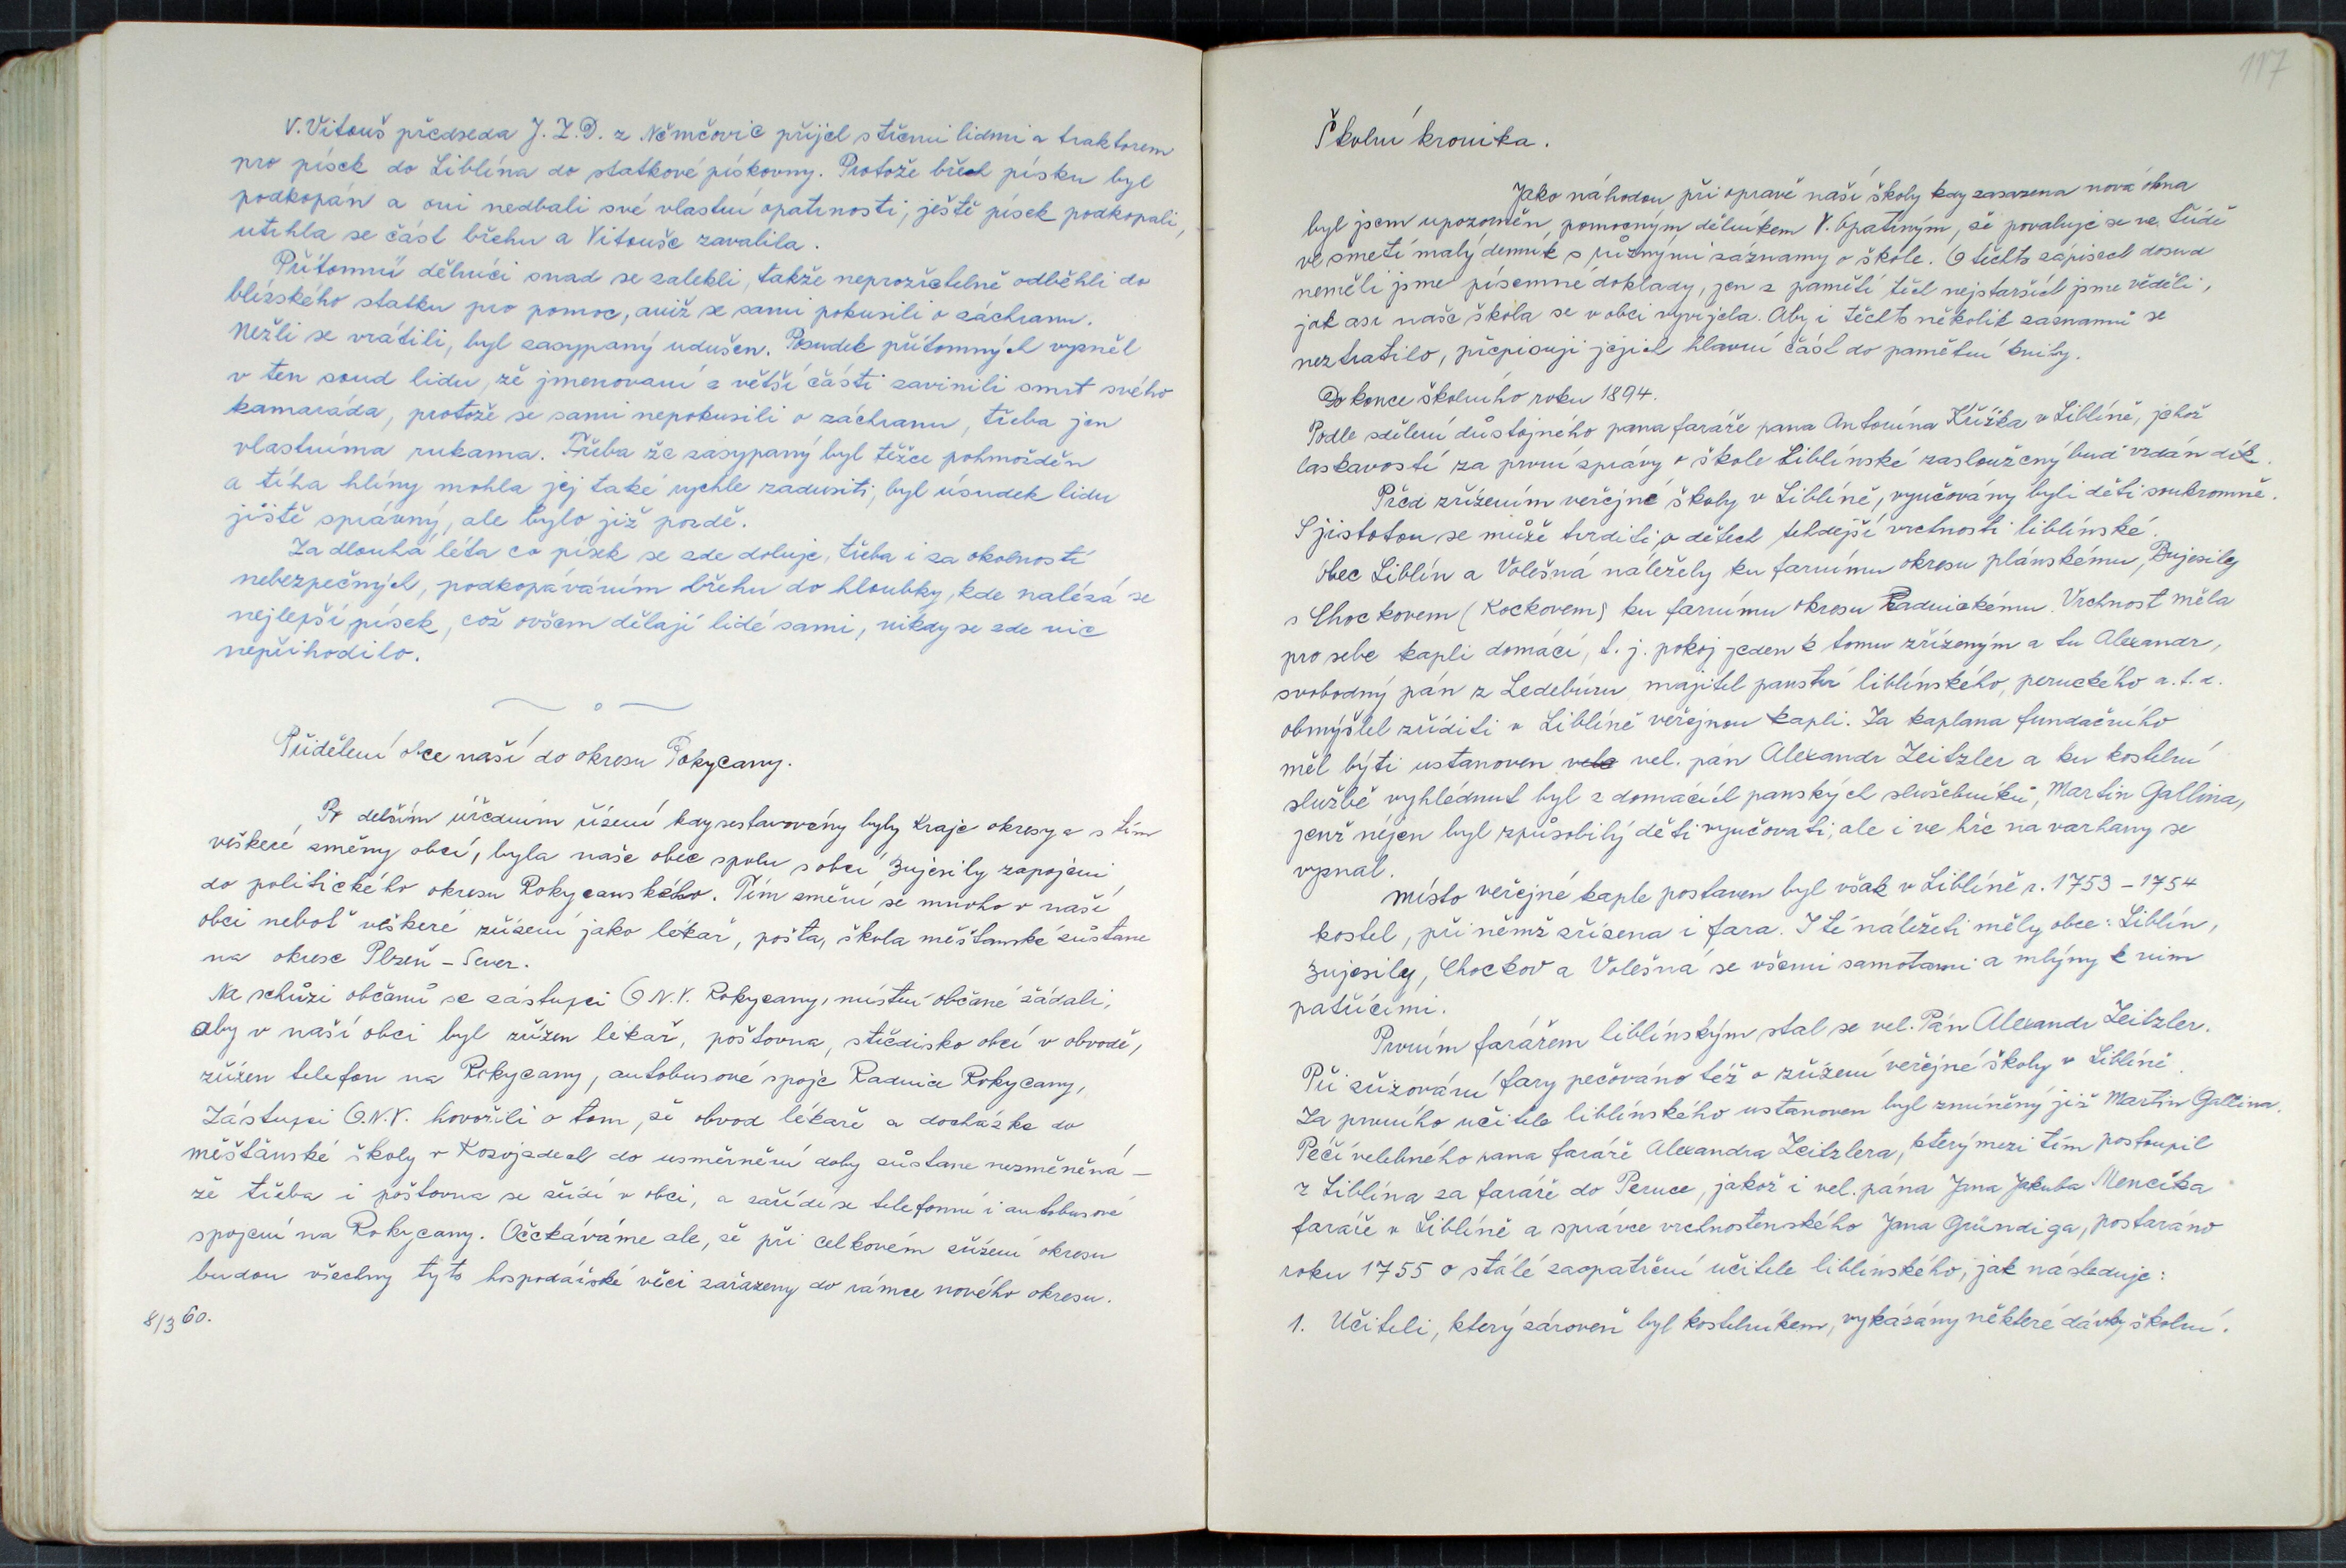 V. Vitouš předseda J. Z. D. z Němčovic přijel s třemi lidmi a traktorem
pro písek do Liblína do statkové pískovny. Protože břeh písku byl
podkopán a oni nedbali své vlastní opatrnosti, ještě písek podkopali,
utrhla se část břehu a Vitouše zavalila.
Přítomní dělníci snad se zalekli, takže neprozřetelně odběhli do
blízského statku pro pomoc, aniž se sami pokusili o záchranu.
Nežli se vrátili, byl zasypaný udušen. Posudek přítomných vyzněl
v ten soud lidu, že jmenovaní z větší části zavinili smrt svého
kamaráda, protože se sami nepokusili o záchranu, třeba jen
vlastníma rukama. Třeba že zasypaný byl těžce pohmožděn
a tíha hlíny mohla jej také rychle zadusiti, byl úsudek lidu
jistě správný, ale bylo již pozdě.
Za dlouhá léta co písek se zde doluje, třeba i za okolností
nebezpečných, podkopáváním břehu do hloubky, kde nalézá se
nejlepší písek, což ovšem dělají lidé sami, nikdy se zde nic
nepřihodilo.
Přidělení obce naší do okresu Rokycany.
Po delším úředním řízení kdy sestavovány byly Kraje okresy a s tím
veškeré změny obcí, byla naše obec spolu s obcí Bujesily zapojení
do politického okresu Rokycanského. Tím změní se mnoho v naší
obci neboť veškeré zřízení jako lékař, pošta, škola měšťanské zůstane
na okrese Plzeň – Sever.
Na schůzi občanů se zástupci O.N.V. Rokycany, místní občané žádali,
aby v naší obci byl zřízen lékař, poštovna, středisko obcí v obvodě,
zřízen telefon na Rokycany, autobusové spoje Radnice Rokycany,
Zástupci O.N.V. hovořili o tom, že obvod lékaře a docházka do
měšťánské školy v Kozojedech do usměrnění doby zůstane nezměněná –
že třeba i poštovna se zřídí v obci, a zařídí se telefonní i autobusové
spojení na Rokycany. Očekáváme ale, že při celkovém zřízení okresu
budou všechny tyto hospodářské věci zařazeny do rámce nového okresu.
8/3 60.
117
Školní kronika.
Jako náhodou při opravě naší školy kdy zasazena nová okna
byl jsem upozorněn, pomocným dělníkem V. Opatrným, že povaluje se ve třídě
ve smetí malý demník s různými záznamy o škole. O těchto zápisech dosud
neměli jsme písemné doklady, jen z paměti těch nejstarších jsme věděli,
jak asi naše škola se v obci vyvíjela. Aby i těchto několik záznamů se
neztratilo, přepisuji jejich hlavní část do pamětní knihy.
Do konce školního roku 1894.
Podle sdělení důstojného pana faráře pana Antonína Křížka v Liblíně, jehož
laskavostí za první zprávy o škole Liblínské zasloužený buď vzdán dík.
Před zřízením veřejné školy v Liblíně, vyučovány byli děti soukromně.
S jistotou se může tvrditi, o dětech tehdejší vrchnosti liblínské.
Obec Liblín a Volešná náležely ku farnímu okresu plánskému, Bujesily
s Chockovem (Kockovem) ku farnímu okresu Radnickému. Vrchnost měla
pro sebe kapli domácí, t. j. pokoj jeden k tomu zřízeným a tu Alexandr,
svobodný pán z Ledebúru majitel panství liblínského, peruckého a. t. d.
obmýšlel zříditi v Liblíně veřejnou kapli. Za kaplana fundačního
měl býti ustanoven vele vel. pán Alexandr Zeitzler a ku kostelní
službě vyhlédnut byl z domácích panských služebníků, Martin Gallina,
jenž nejen byl způsobilý děti vyučovati, ale i ve hře na varhany se
vyznal.
Místo veřejné kaple postaven byl však v Liblíně r. 1753 – 1754
kostel, při němž zřízena i fara. I té náležeti měly obce: Liblín,
Bujesily, Chockov a Volešná se všemi samotami a mlýny k nim
patřícími.
Prvním farářem liblínským stal se vel. Pán Alexandr Zeitzler.
Při zřizování fary pečováno též o zřízení veřejné školy v Liblíně.
Za prvního učitele liblínského ustanoven byl zmíněný již Martin Gallina.
Péčí velebného pana faráře Alexandra Zeitzlera, který mezi tím postoupil
z Liblína za faráře do Peruce, jakož i vel. pána Jana Jakuba Mencíka
faráře v Liblíně a správce vrchnostenského Jana Gründiga, postaráno
roku 1755 o stálé zaopatření učitele liblínského, jak následuje:
1. Učiteli, který zároveň byl kostelníkem, vykázány některé dávky školní.